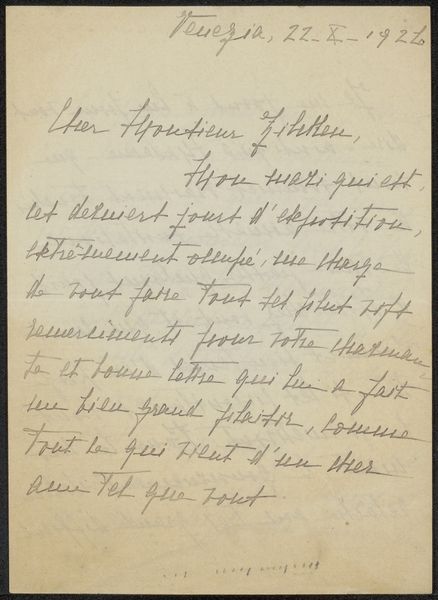 Venezia, 22-X-1926
Cher Monsieur Zilcken,
Mon mari qui est,
ces derniers jours d'exposition,
extrêmement occupé, me charge
de vous faire tous ses plus vifs
remerciments pour votre charman-
te et bonne lettre qui lui a fait
un bien grand plaisir, comme
tout ce qui vient d'un cher
ami tel que vous